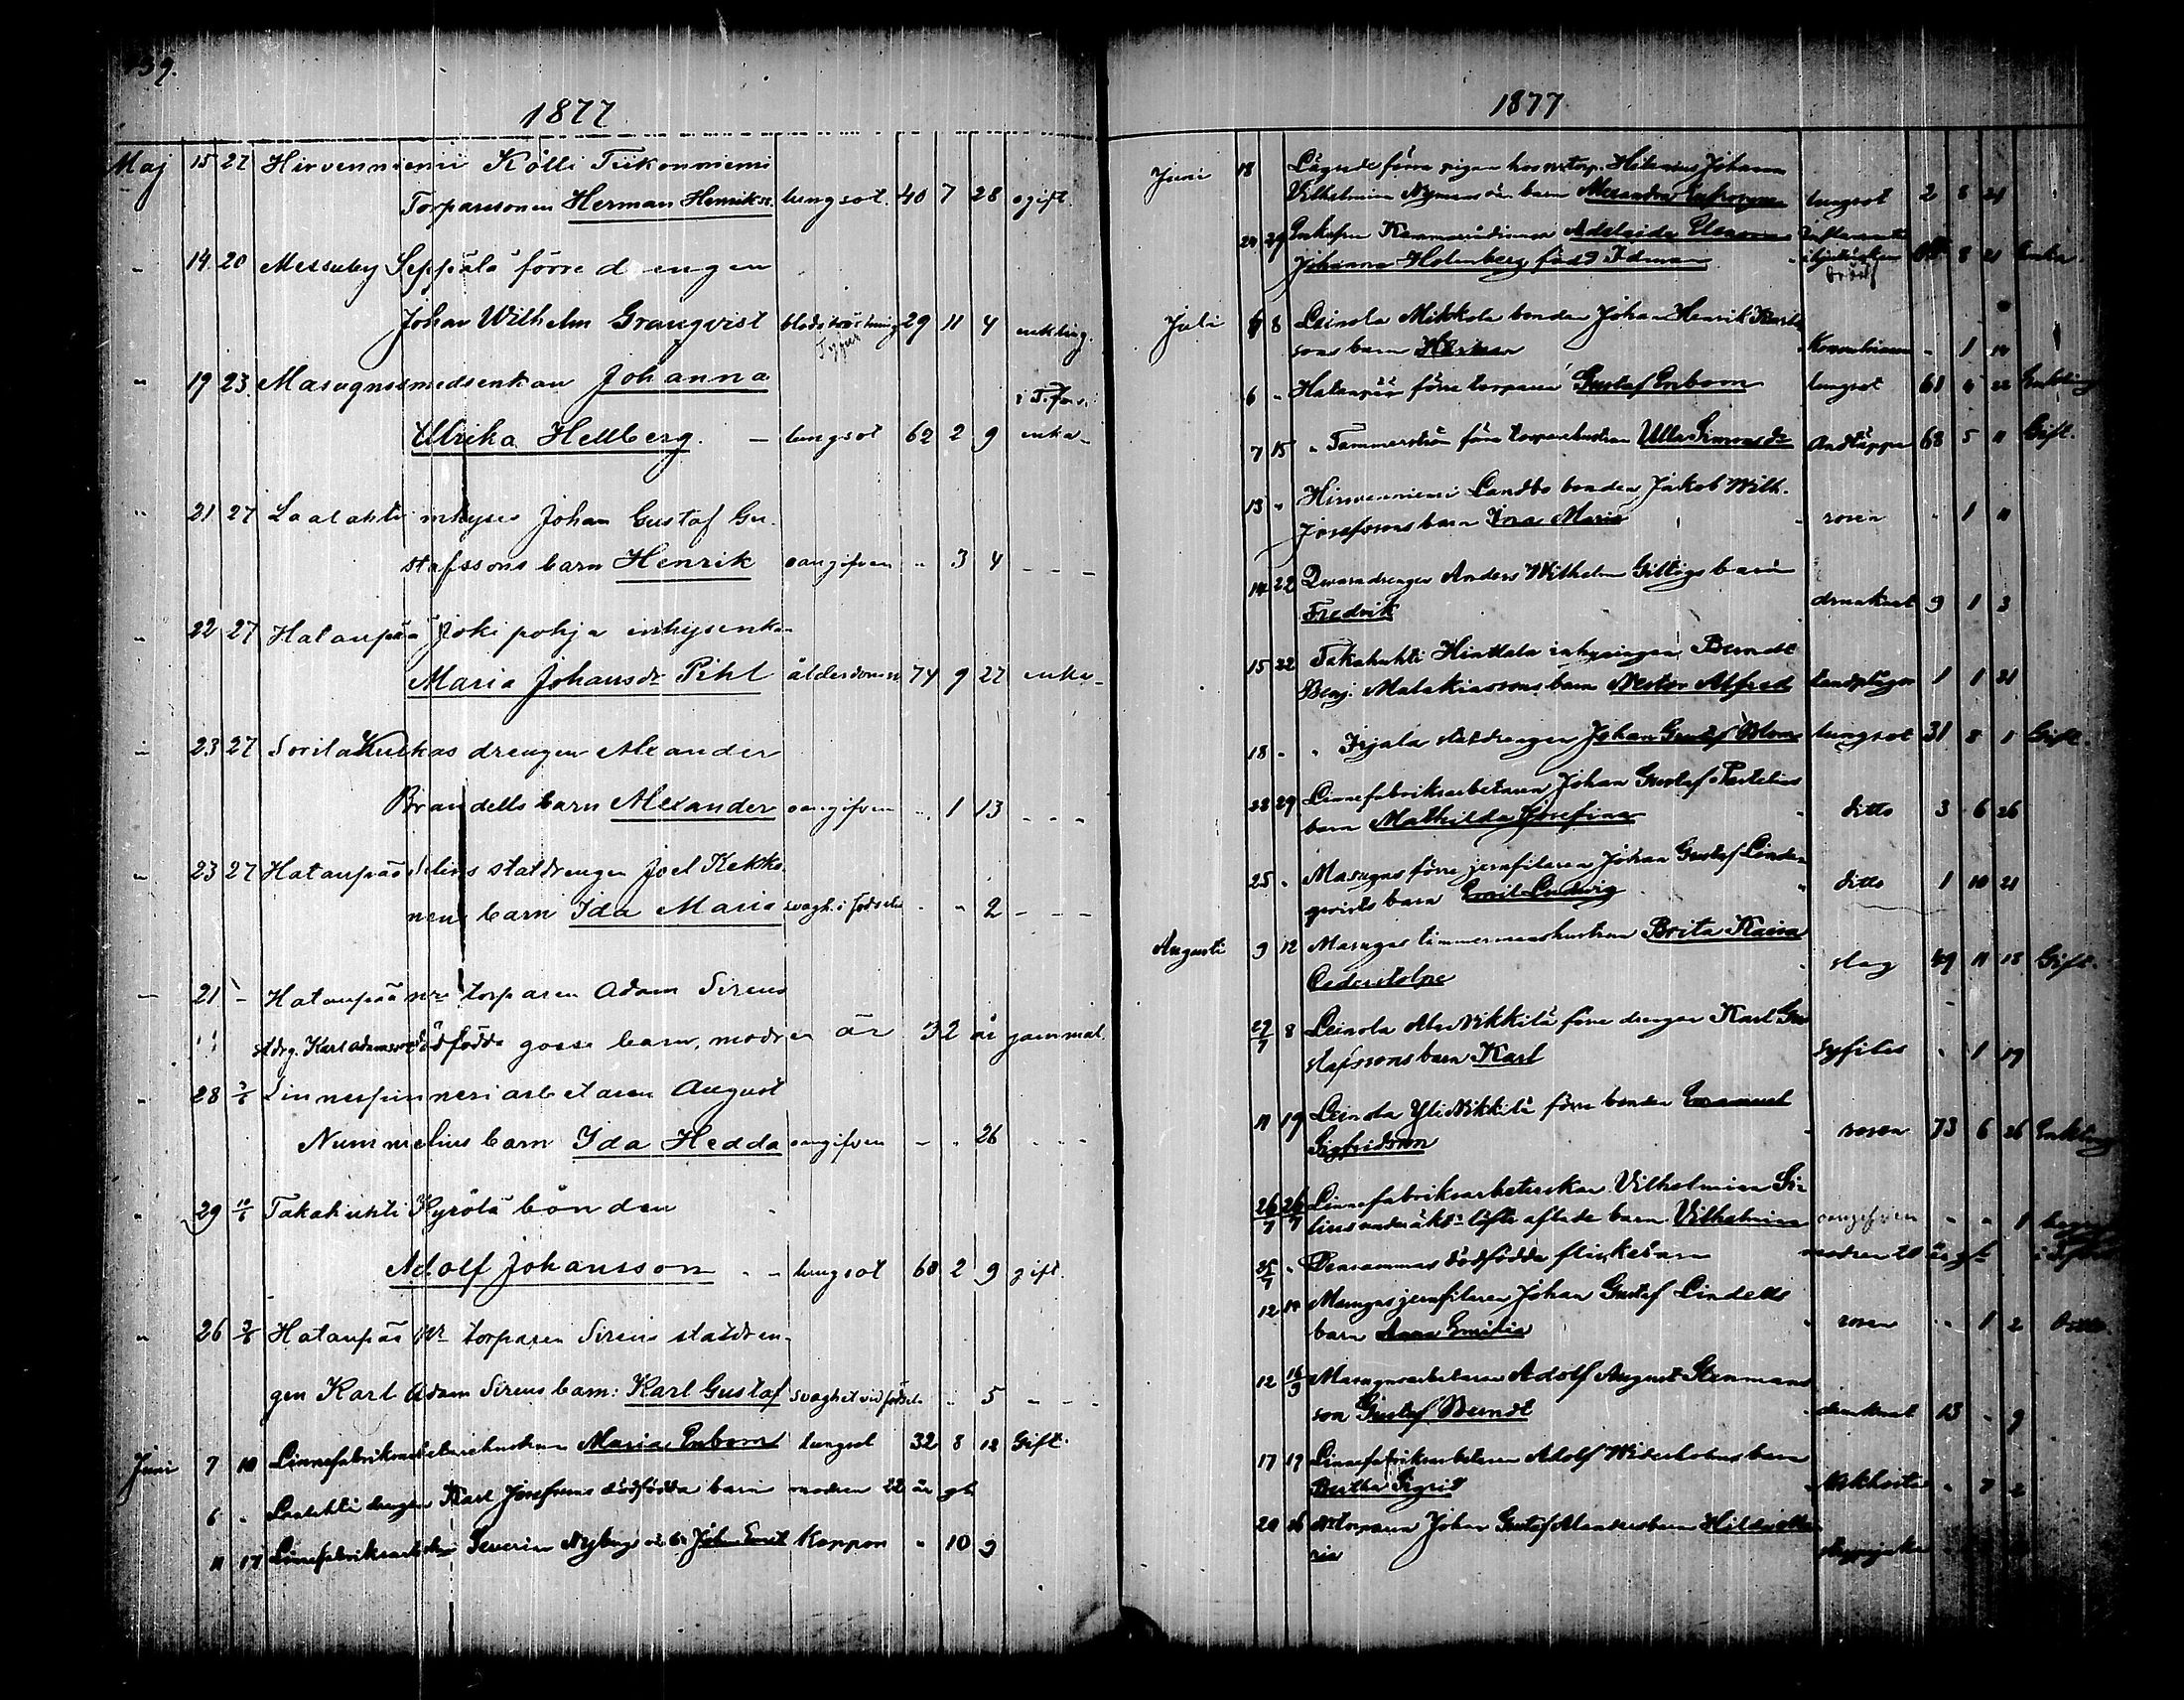 39.
1877
Maj 15 27 Hirvenniemi Kölli Tiikonniemi
Torparesonen Herman Henrikss. lungsot. 40 7 28 ogift.
" 14 20 Messuby Seppälä förre drengen
Johan Wilhelm Granqvist blodstörtning 29 11 4 enkling.
Tyfus
" 19 23 Masugnssmedsenkan Johanna
Ulrika Hellberg. lungsot 62 2 9 enka
" 21 27 Laalahti inhyses Johan Gustaf Gu-
stafssons barn Henrik oangifven " 3 4 - - -
" 22 27 Hatanpää Jokipohja inhysenkan
Maria Johansdr Pihl ålderdomen 74 9 27 enka
" 23 27 Sorila Kurkas drengen Alexander
Brandells barn Alexander oangifven " 1 13 - - -
" 23 27 Hatanpää statdrengen Joel Kekko-
nens barn Ida Maria svagh. i födseln " " 2 - - -
" 21 " Hatanpää nra torparen Adam Sirens
stdrg. Karl Adamssons dödfödda gosse barn, modren är 32 år gammal.
" 28 3/6 Linnespinneriarbetaren August
Nummelius barn Ida Hedda oangifven " " 26 - - -
" 29 10/6 Takahuhti Kyrölä bonden
Adolf Johansson lungsot 60 2 9 gift.
" 26 3/6 Hatanpää nr torparen Sirens statdren-
gen Karl Adam Sirens barn: Karl Gustaf svaghet vid födseln " " 5 - - -
Juni 7 10 Linnefabriksarbetarehustrun Maria Enbom lungsot 32 8 12 Gift.
6 " Laalahti drengen Karl Josefssons dödfödda barn modren 22 år gl.
11 17 Linnefabriksarb. Severin Nybergs Johan Ernst Koppor " 10 9
1877
Juni 18 förre pigan hos Johanna
Vilhelmina Nymans barn Alexandra lungsot 2 8 24
24 29 Enkefru Adelaide Eleonora
Johanna Holmberg född Idman 8 21 Enka
Juli 6 8 Leinola Mikkola bonden Johan Henrik Karls-
sons barn Herman " 1 14
6 " Hatanpää förre torparen Gustaf Enbom lungsot 61 4 22 Enkling
7 15 " Tammerström förre torparehustrun Ulla Simonsdr Andtäppa 68 5 11 Gift.
13 " Hirvenniemi Landbo bonden Jakob Wilh.
Josefssons barn Maria rosen " 1 11
14 22 Anders Wilhelm barn
Fredrik drunknat 9 1 3
15 22 Takahuhti Hinttala inhysingen Berndt
Benj. Malakiassons barn Nestor Alfred tandplågor 1 1 21
18 " " Irjala statdrengen Johan Gustaf Blom lungsot 31 8 1 Gift.
22 29 Linnefabriksarbetaren Johan Gustaf
barn Mathilda Josefina ditto 3 6 26
25 " Masugns förre jernfilaren Johan Gustaf Linde-
qvists barn Emil Ludvig ditto 1 10 21
Augusti 9 12 Masugns timmermanshustrun Brita Kaisa
Cederstolpe slag 49 11 18 Gift.
29/7 8 Leinola Ala Nikkilä förre drengen Karl Gu-
stafssons barn Karl syfilis " 1 19
11 19 Leinola Yli Nikkilä förre bonden Emanuel
Sigfridsson rosen 73 6 26 Enkling
26/7 26/7 Linnefabriksarbeterskan Vilhelmina
under äkt. löfte aflade barn Vilhelmina oangifven " " 1
25/7 " Densammas dödfödda flickebarn modren 20 år gl.
12 14 Masugns jernfilaren Johan Gustaf Lindells
barn Anna Emilia rosen " 1 2
12 16/9 Masugnsarbetaren Adolf August Stenmans
son Gustaf Berndt drunknat 13 " 9
17 19 Linnefabriksarbetaren Adolf Widerholms barn
Bertha Sigrid Kikhosta " 7 2
20 26 torparen Johan Gustaf barn Hilda Ma-
ria